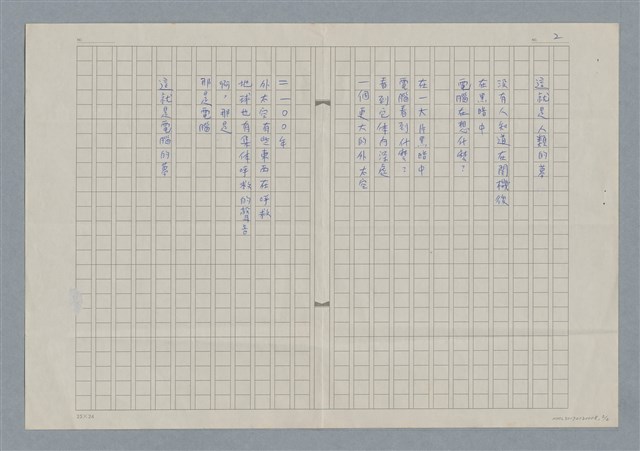 2
這就是人類的夢
沒有人知道在關機後
在黑暗中
電腦在想什麼？
在一大片黑暗中
電腦看到什麼？
看到它体内深處
一個更大的外太空
二一〇〇年
外太空有些東西在呼救
地球也有集体呼救的聲音
啊，那是
那是電腦
這就是電腦的夢